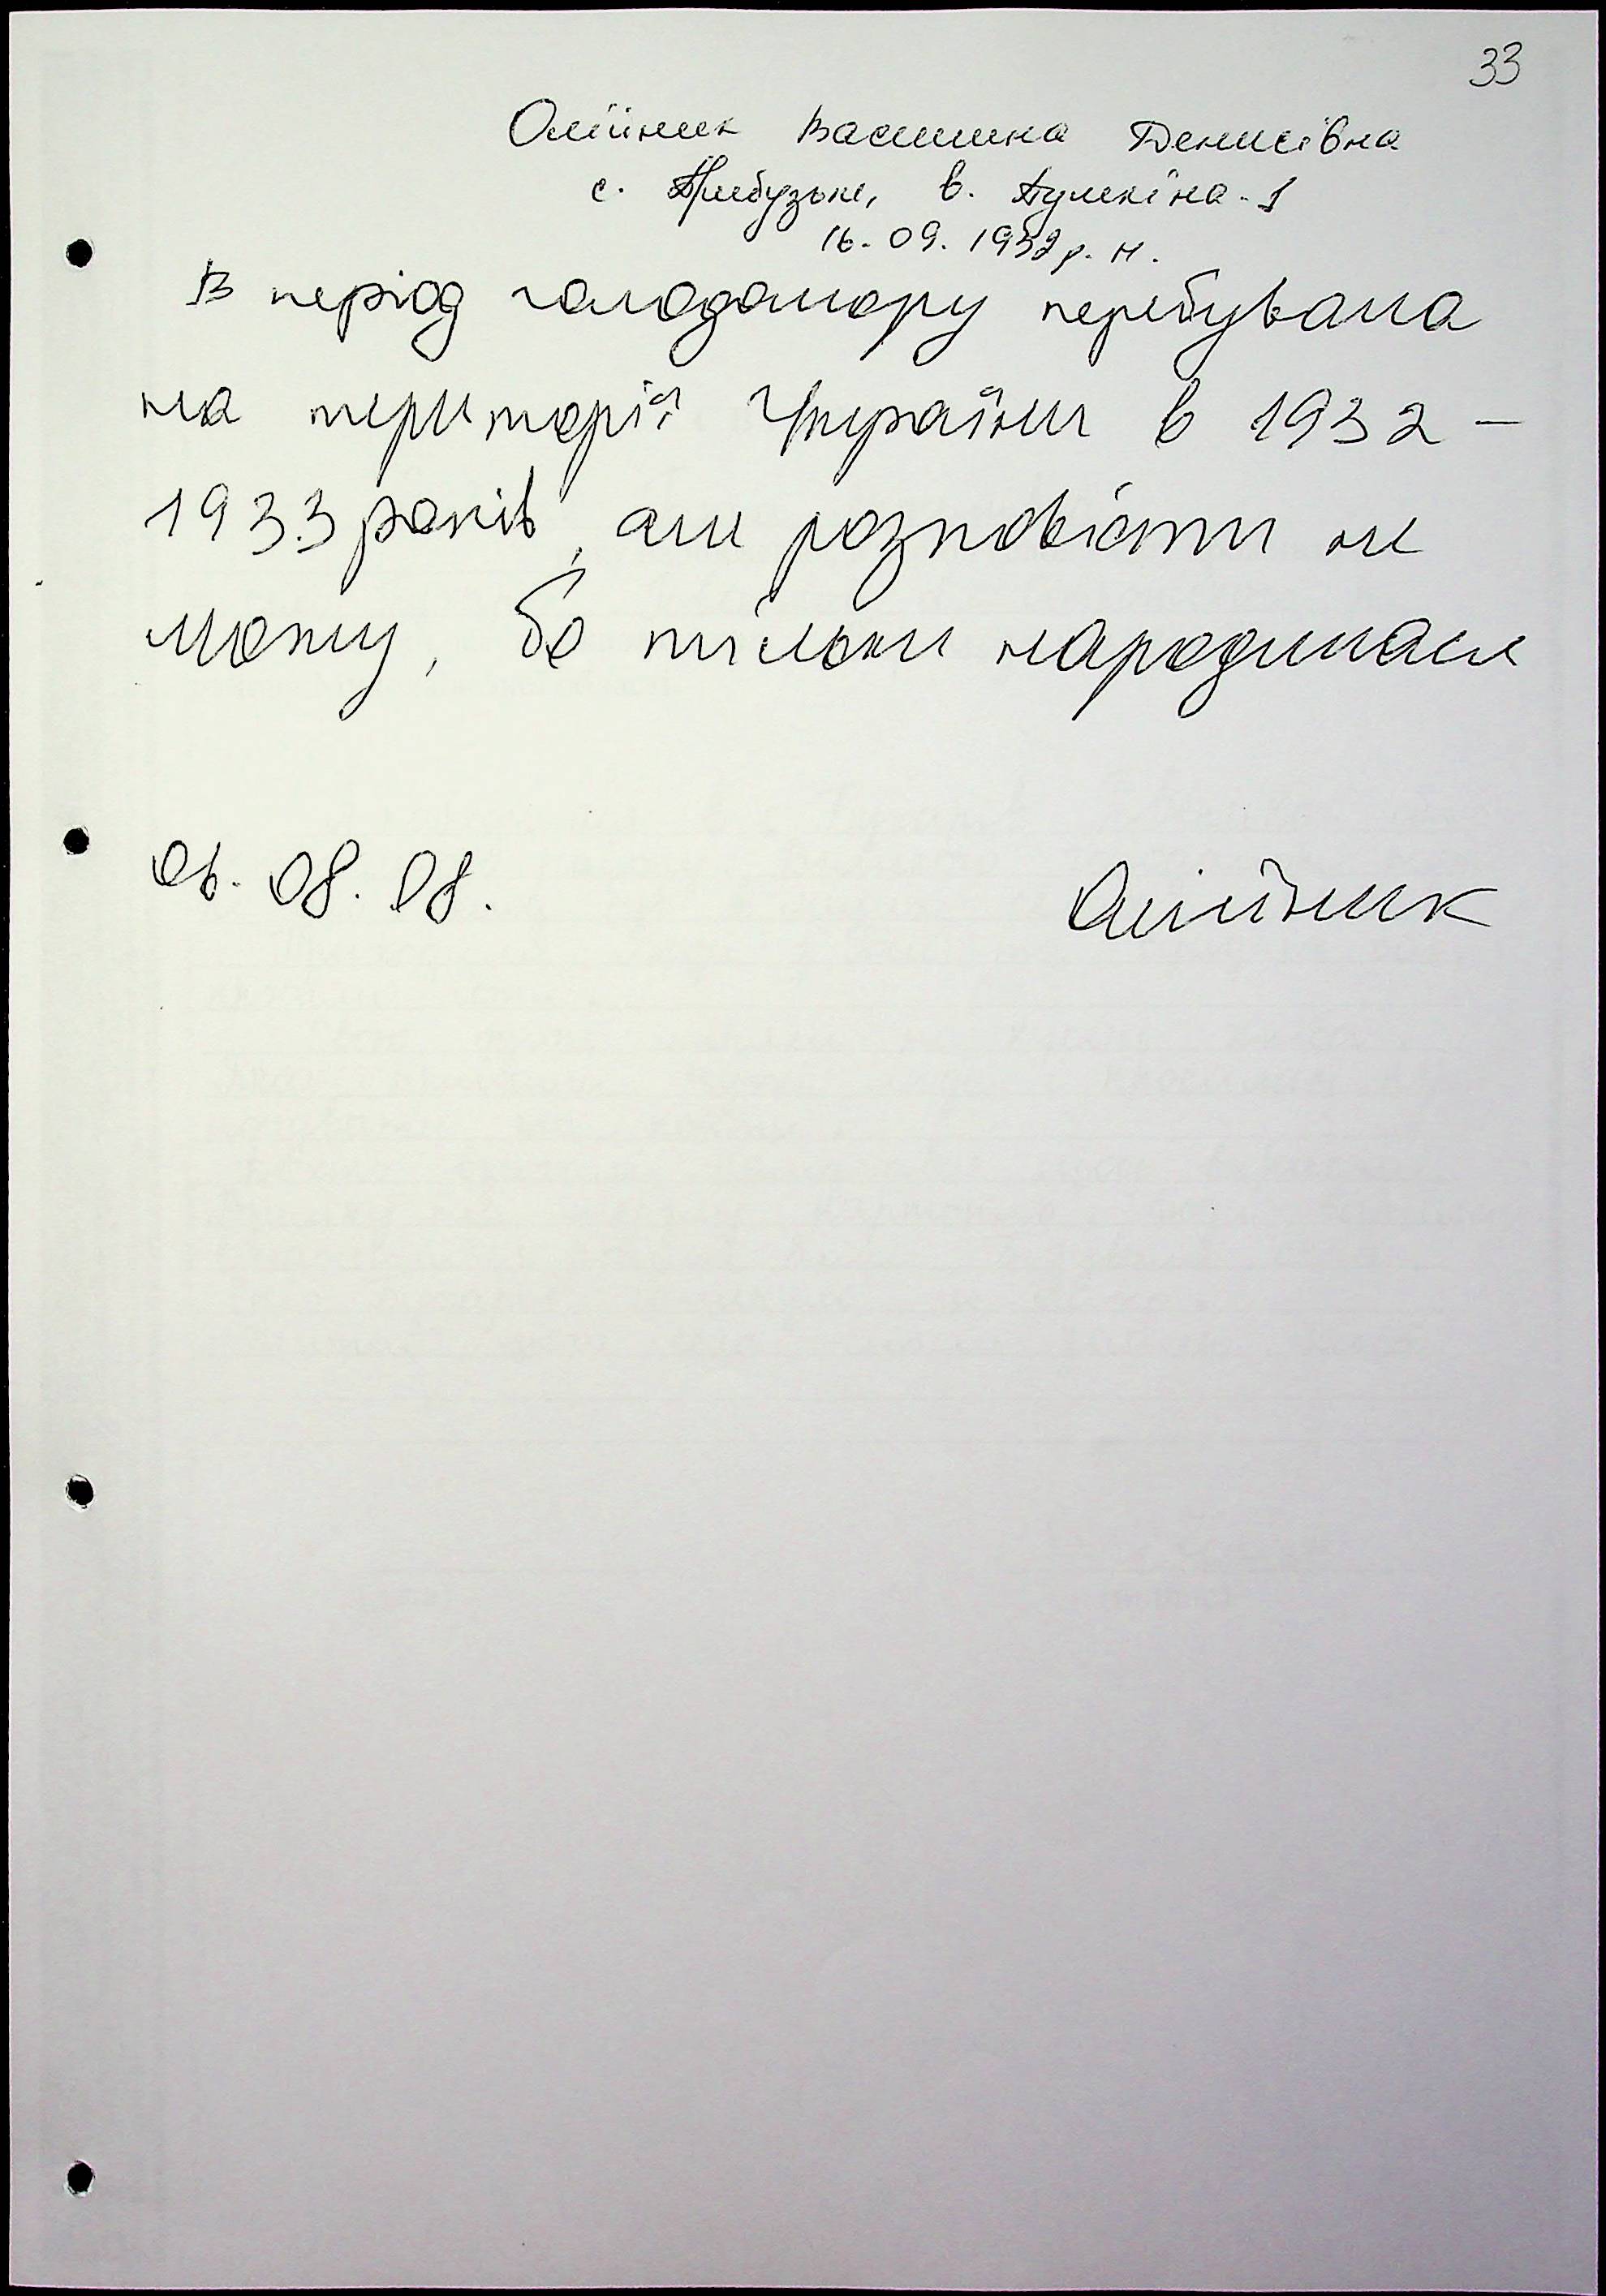 33
Олійник Василина Денисівна
с. Прибузьке, в. Пушкіна - 1
16. 09. 1932 р. н.
В період голодомору перебувала
на території України в 1932 –
1933 років, але розповісти не
можу, бо тільки народилася
06. 08. 08.
Олійник